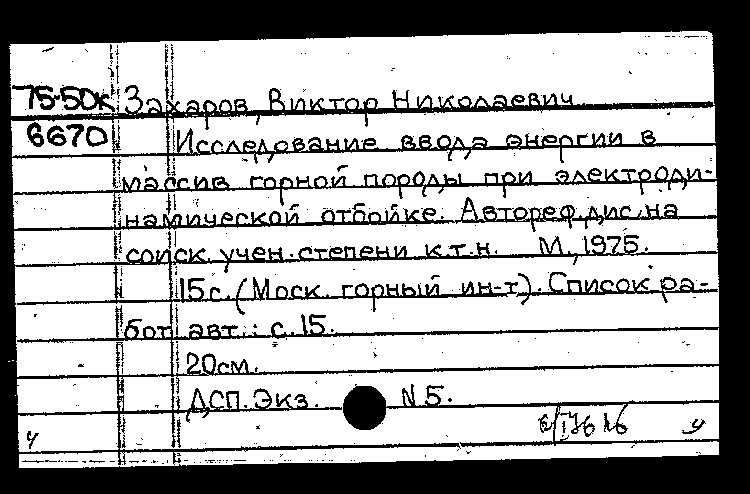 75-50к Захаров, Виктор Николаевич
6670 Исследование ввода энергии в
массив горной породы при электроди-
намической отбойке. Автореф.дис.на
соиск.учен.степени к.т.н. М.,1975.
15с.(Моск.горный ин-т). Список ра-
бот авт.: с.15.
20см.
ДСП.Экз. N5.